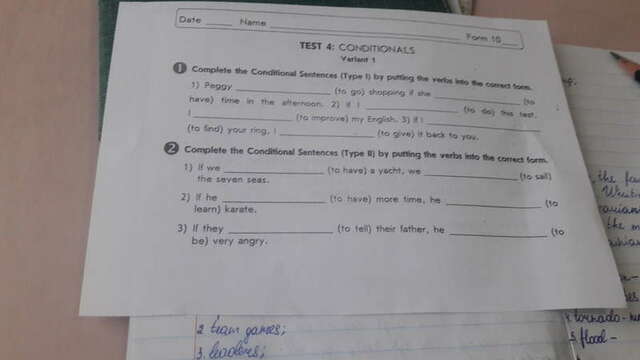 Date _____ Name _____ Form 10 ___
TEST 4: CONDITIONALS
Variant 1
1 Complete the Conditional Sentences (Type I) by putting the verbs into the correct form.
1) Peggy _____ (to go) shopping if she _____ (to
have) time in the afternoon. 2) If I _____ (to do) this test,
I _____ (to improve) my English. 3) If I _____
(to find) your ring, I _____ (to give) it back to you.
2 Complete the Conditional Sentences (Type II) by putting the verbs into the correct form.
1) If we _____ (to have) a yacht, we _____ (to sail)
the seven seas.
2) If he _____ (to have) more time, he _____ (to
learn) karate.
3) If they _____ (to tell) their father, he _____ (to
be) very angry.
2. team games;
3. leaders;
the
the
tornado -
5. flood -